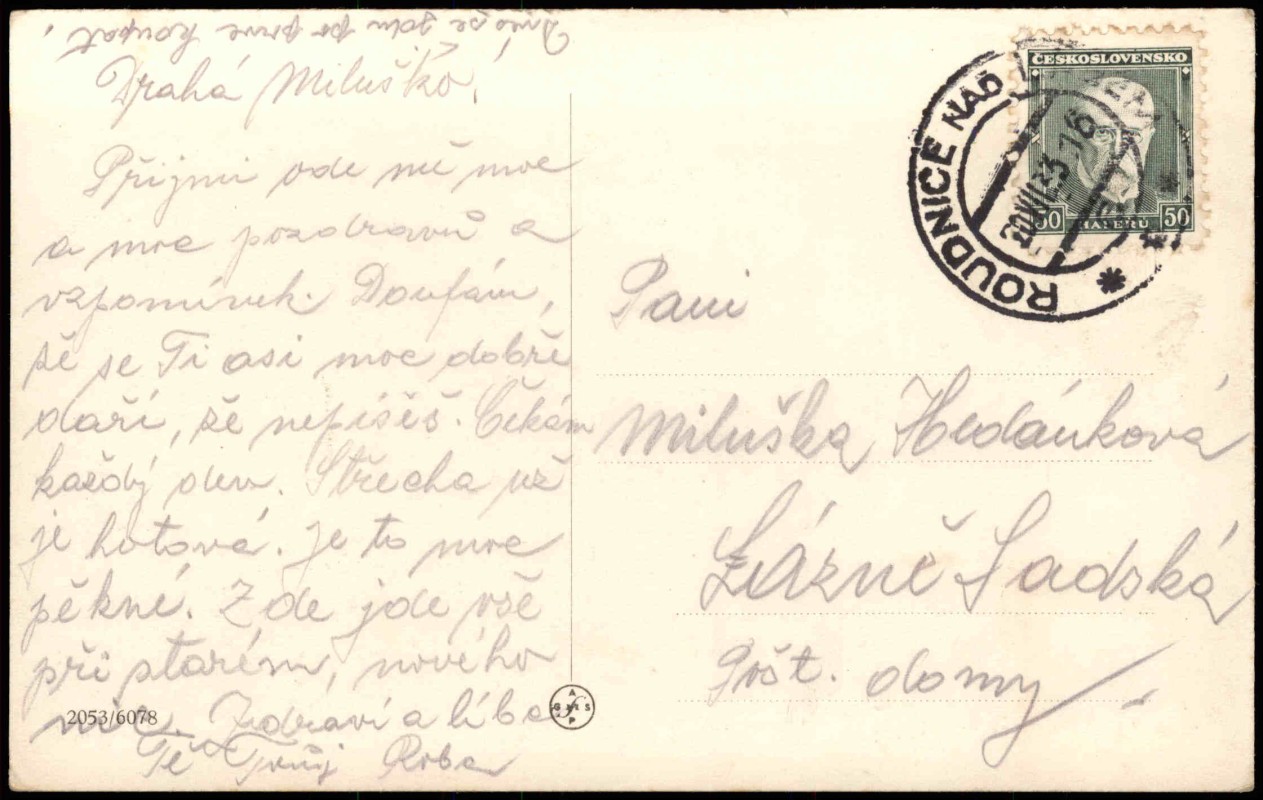 Dnes se jdu po prvé koupat.
Drahá Miluško!
Přijmi ode mě moc
a moc pozdravů a
vzpomínek. Doufám,
žě se Ti asi moc dobře
daří, žě nepíšěš. Čekám
každý den. Střecha už
je hotová. Je to moc
pěkné. Zde jde vše
při starém, nového
nic. Zdraví a líbá
Tě Tvůj
2053/6078
ČESKOSLOVENSKO
50 HALÉŘŮ 50
ROUDNICE NAD
20.VII.33.-16
Paní
Miluška Hedánková
Lázně Sadská
Pošt. domy